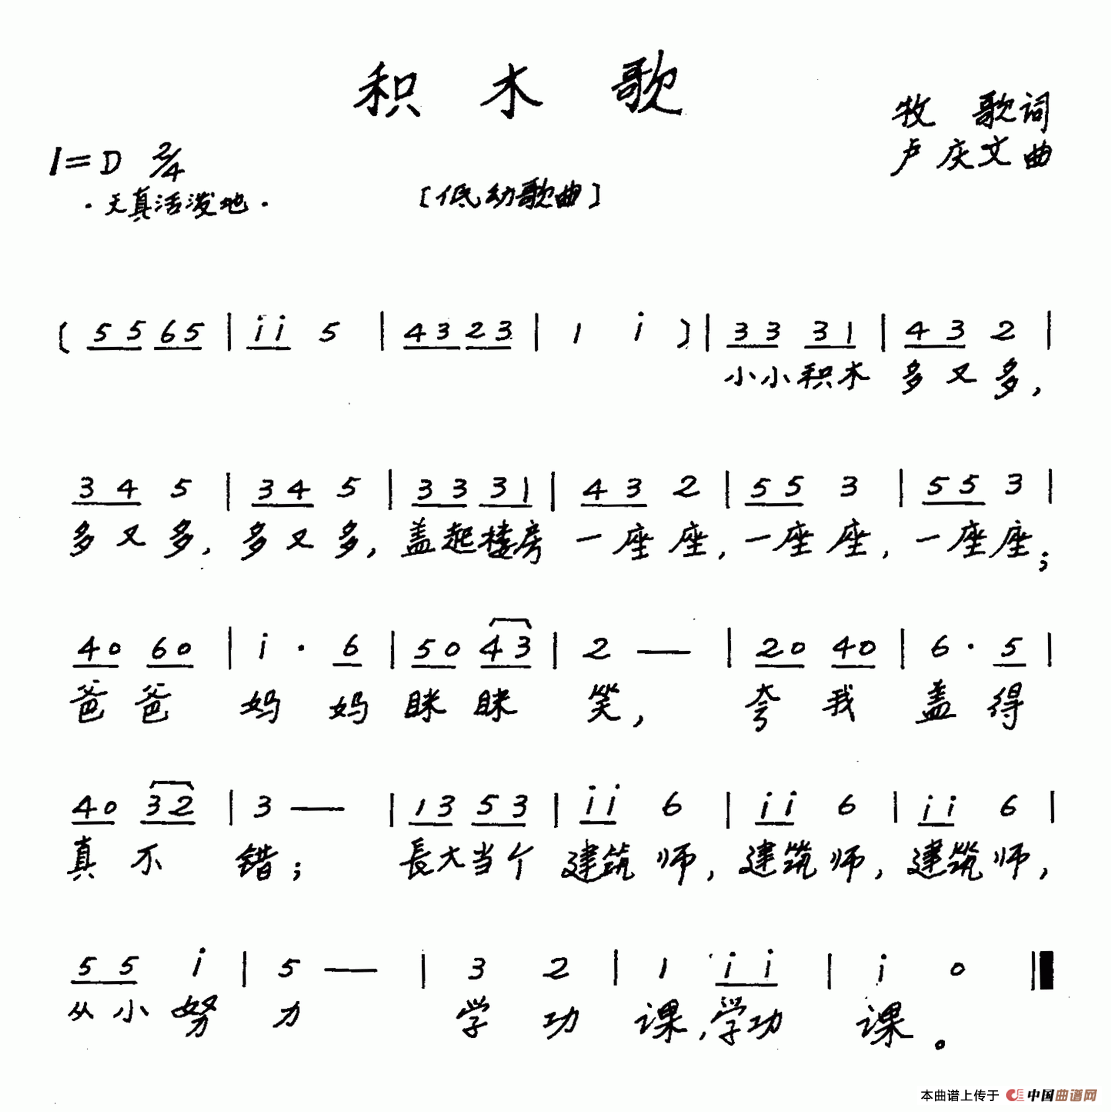 积木歌
牧 歌词
卢庆文曲
1=D 2/4
·天真活泼地·
[低幼歌曲]
( 5 5 6 5 | i i 5 | 4 3 2 3 | 1 i ) | 3 3 3 1 | 4 3 2 |
小小积木 多又多,
3 4 5 | 3 4 5 | 3 3 3 1 | 4 3 2 | 5 5 3 | 5 5 3 |
多又多, 多又多, 盖起楼房 一座座, 一座座, 一座座;
4 0 6 0 | i · 6 | 5 0 4 3 | 2 — | 2 0 4 0 | 6 · 5 |
爸爸 妈妈 眯眯 笑, 夸我 盖得
4 0 3 2 | 3 — | 1 3 5 3 | i i 6 | i i 6 | i i 6 |
真不 错; 長大当个 建筑师, 建筑师, 建筑师,
5 5 i | 5 — | 3 2 | 1 i i | i 0 ‖
从小努 力 学功 课,学功 课。
本曲谱上传于 中国曲谱网